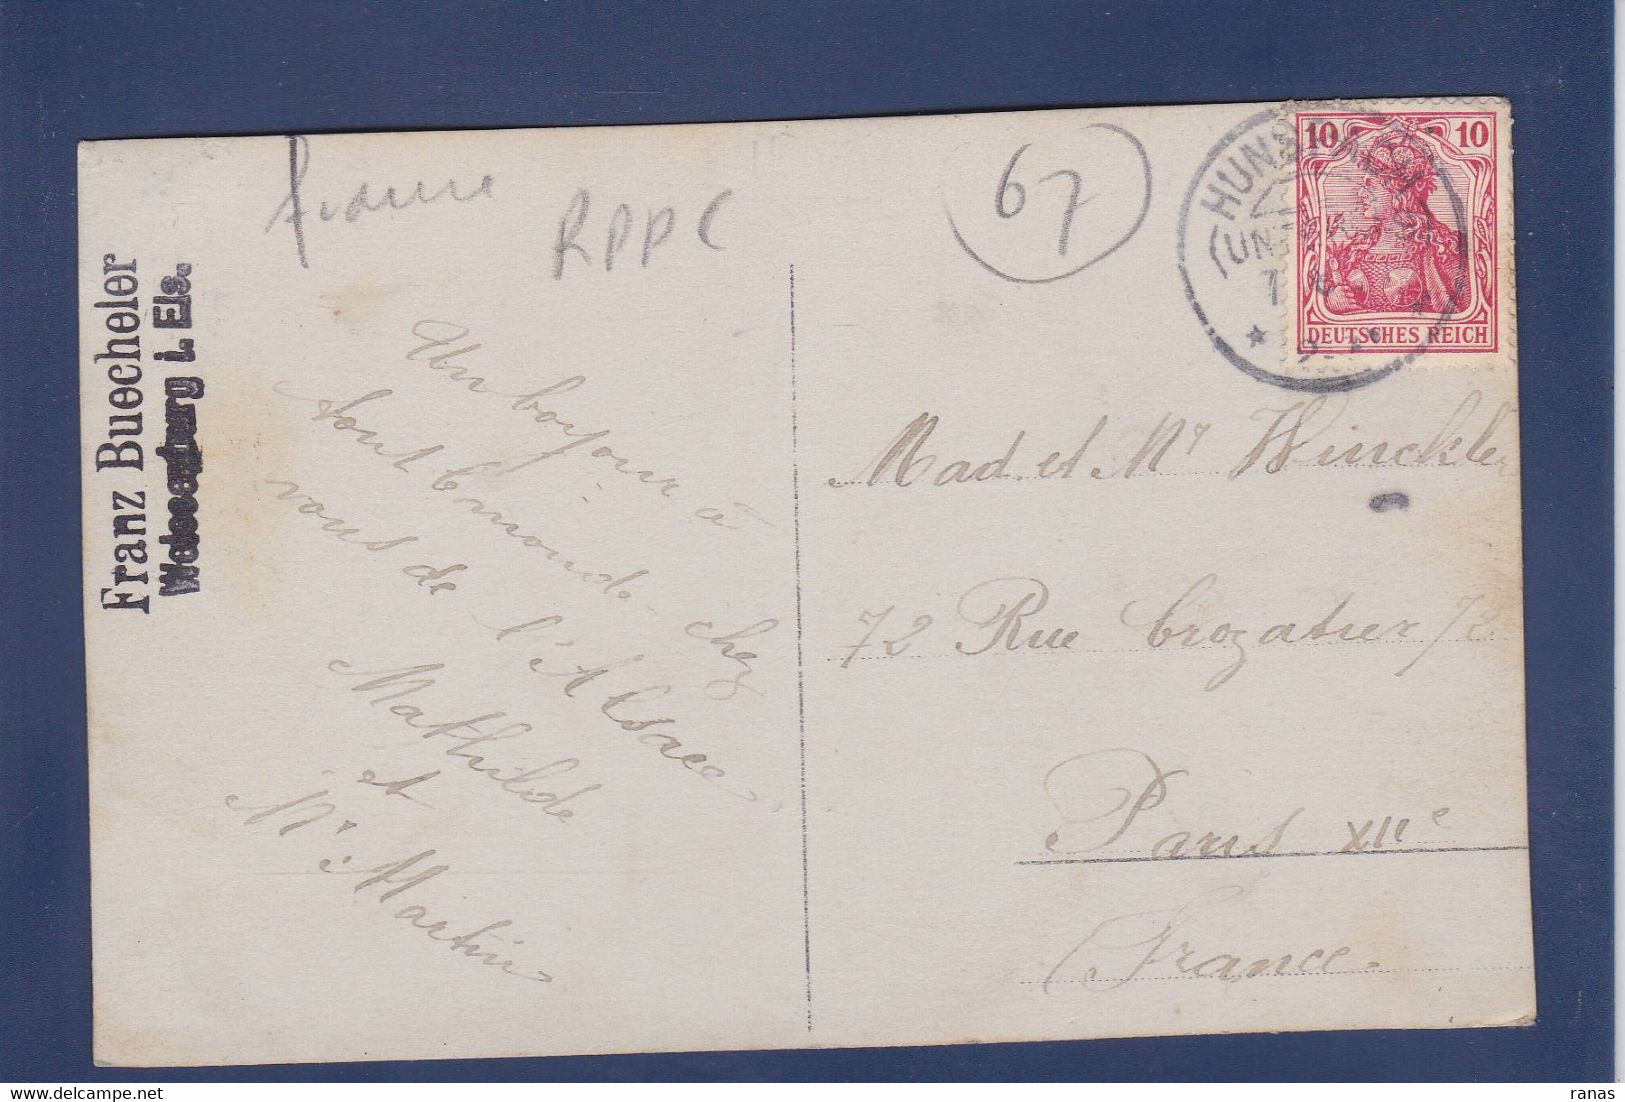 france
RPPC
67
Franz Buecheler
Weissenburg i. Els.
HUNSPACH
10 10
DEUTSCHES REICH
Un bonjour à
tout l'monde chez
vous de l'Alsace
Mathilde
et
Mr Martin
Mad. et Mr Winckler
72 Rue Crozatier 72
Paris XIIe
France.
ranas